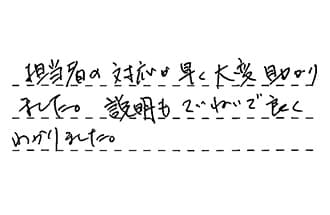 担当者の対応が早く大変助かり
ました。説明もていねいで良く
わかりました。